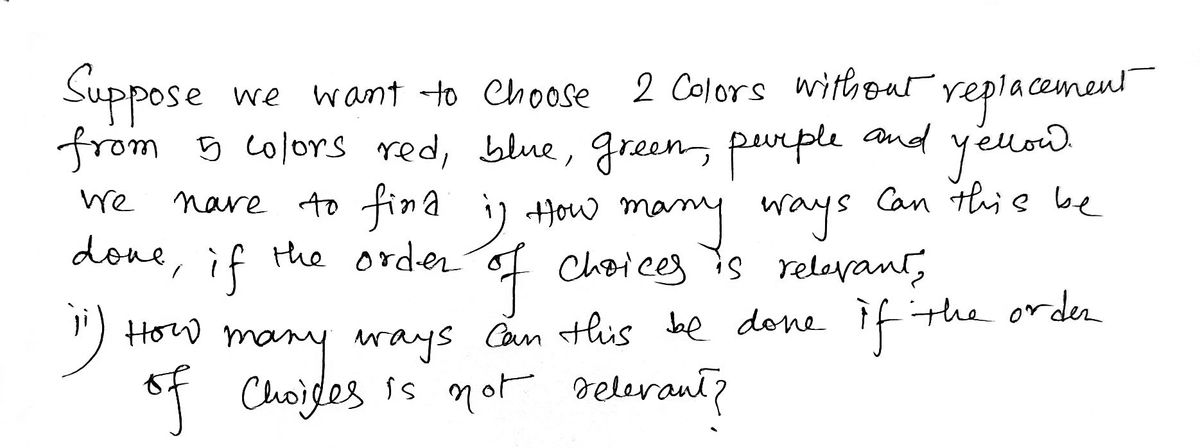 Suppose we want to choose 2 Colors without replacement
from 5 colors red, blue, green, purple and yellow.
We have to find i) How many ways can this be
done, if the order of choices is relevant,
ii) How many ways can this be done if the order
of Choices is not relevant?